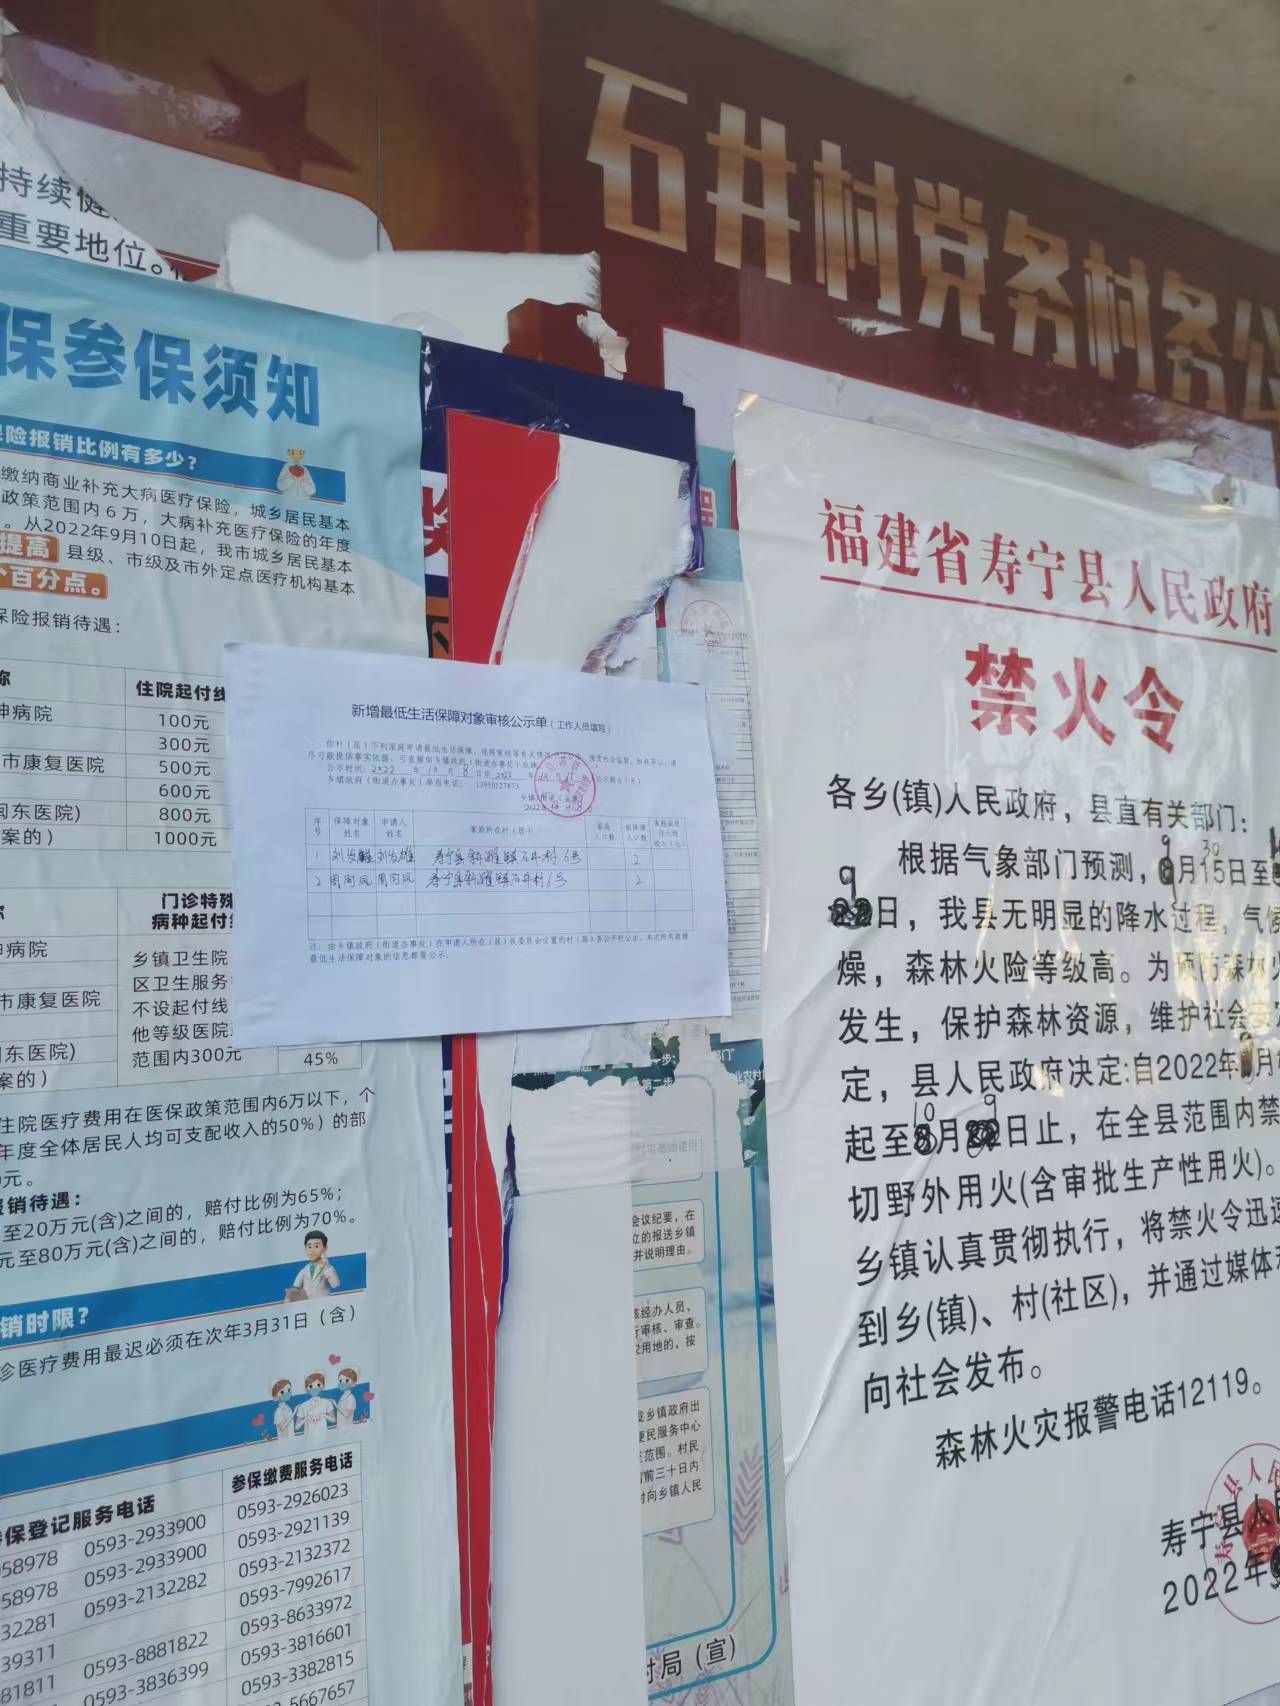 石井村党务村务公
持续健
重要地位。
保参保须知
保险报销比例有多少?
缴纳商业补充大病医疗保险，城乡居民基本
政策范围内6万，大病补充医疗保险的年度
。从2022年9月10日起，我市城乡居民基本
提高 县级、市级及市外定点医疗机构基本
个百分点。
保险报销待遇：
称
住院起付线
神病院
100元
300元
市康复医院
500元
600元
闽东医院)
800元
案的)
1000元
称
门诊特殊
病种起付
神病院
乡镇卫生院
区卫生服务
市康复医院
不设起付线
他等级医院
闽东医院)
范围内300元
案的)
45%
住院医疗费用在医保政策范围内6万以下，个
年度全体居民人均可支配收入的50%）的部
元。
报销待遇：
至20万元(含)之间的，赔付比例为65%；
元至80万元(含)之间的，赔付比例为70%。
销时限?
诊医疗费用最迟必须在次年3月31日（含）
参保登记服务电话
参保缴费服务电话
58978 0593-2933900 0593-2926023
58978 0593-2933900 0593-2921139
32281 0593-2132282 0593-2132372
39311 0593-7992617
81811 0593-8881822 0593-8633972
0593-3836399 0593-3816601
0593-3382815
5667657
新增最低生活保障对象审核公示单（工作人员填写）
你村（居）下列家庭申请最低生活保障，
尽可能提供事实依据，可直接向乡镇政府(街道办事处)反映。
公示时间：2022年10月8日至2023年10月15日(公示期为7天)
乡镇政府（街道办事处）举报电话：13950527873
序号 保障对象姓名 申请人姓名 家庭所在村（居） 家庭人口数 拟保障人口数 家庭成员月人均收入(元)
1 刘发雄 刘发雄 寿宁县斜滩镇石井村6号 2
2 周阿凤 周阿凤 寿宁县斜滩镇石井村6号 2
注：由乡镇政府（街道办事处）在申请人所在（居）民委员会设置的村（居）务公开栏公示，本次所有新增
最低生活保障对象的信息都要公示。
第二步
会议纪要，在
立的报送乡镇
并说明理由。
核经办人员、
行审核、审查。
用地的，按
发乡镇政府出
便民服务中心
范围。村民
前三十日内
时向乡镇人民
村局（宣）
福建省寿宁县人民政府
禁火令
各乡(镇)人民政府，县直有关部门：
根据气象部门预测，9月30日至
9日，我县无明显的降水过程，气候
燥，森林火险等级高。为预防森林火
发生，保护森林资源，维护社会安定
定，县人民政府决定：自2022年
起至10月9日止，在全县范围内禁
切野外用火(含审批生产性用火)。
乡镇认真贯彻执行，将禁火令迅速
到乡(镇)、村(社区)，并通过媒体
向社会发布。
森林火灾报警电话12119。
寿宁县人民
2022年